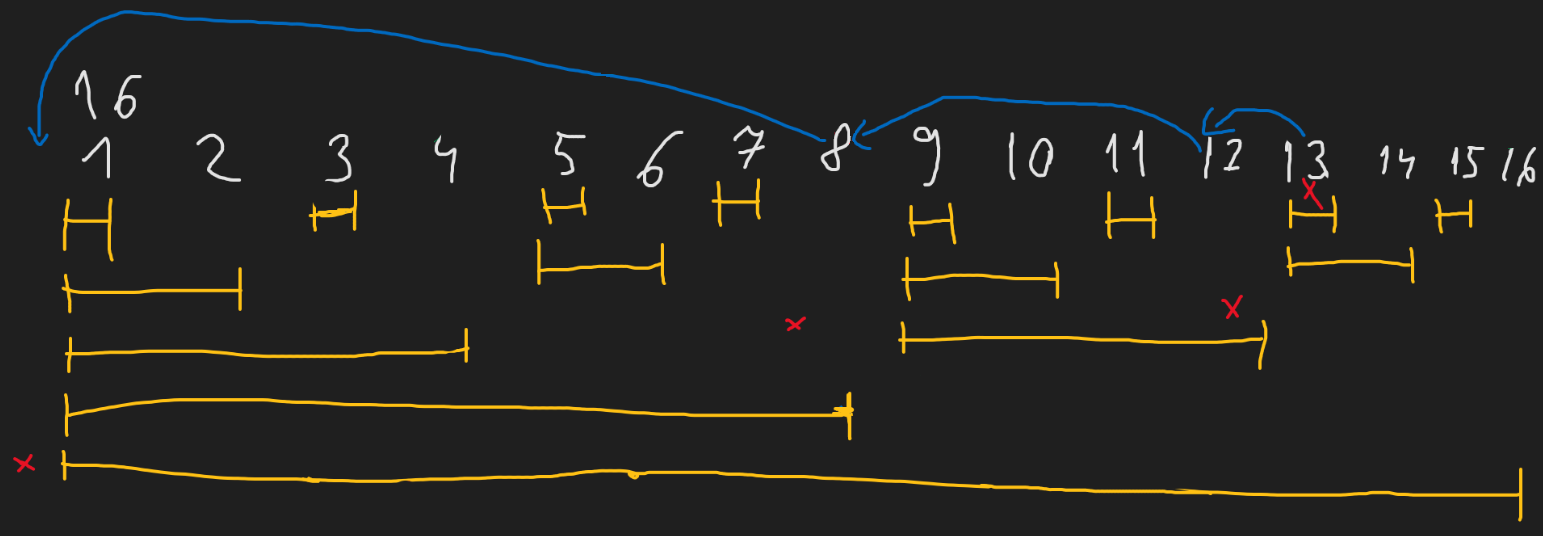 16
1 2 3 4 5 6 7 8 9 10 11 12 13 14 15 16